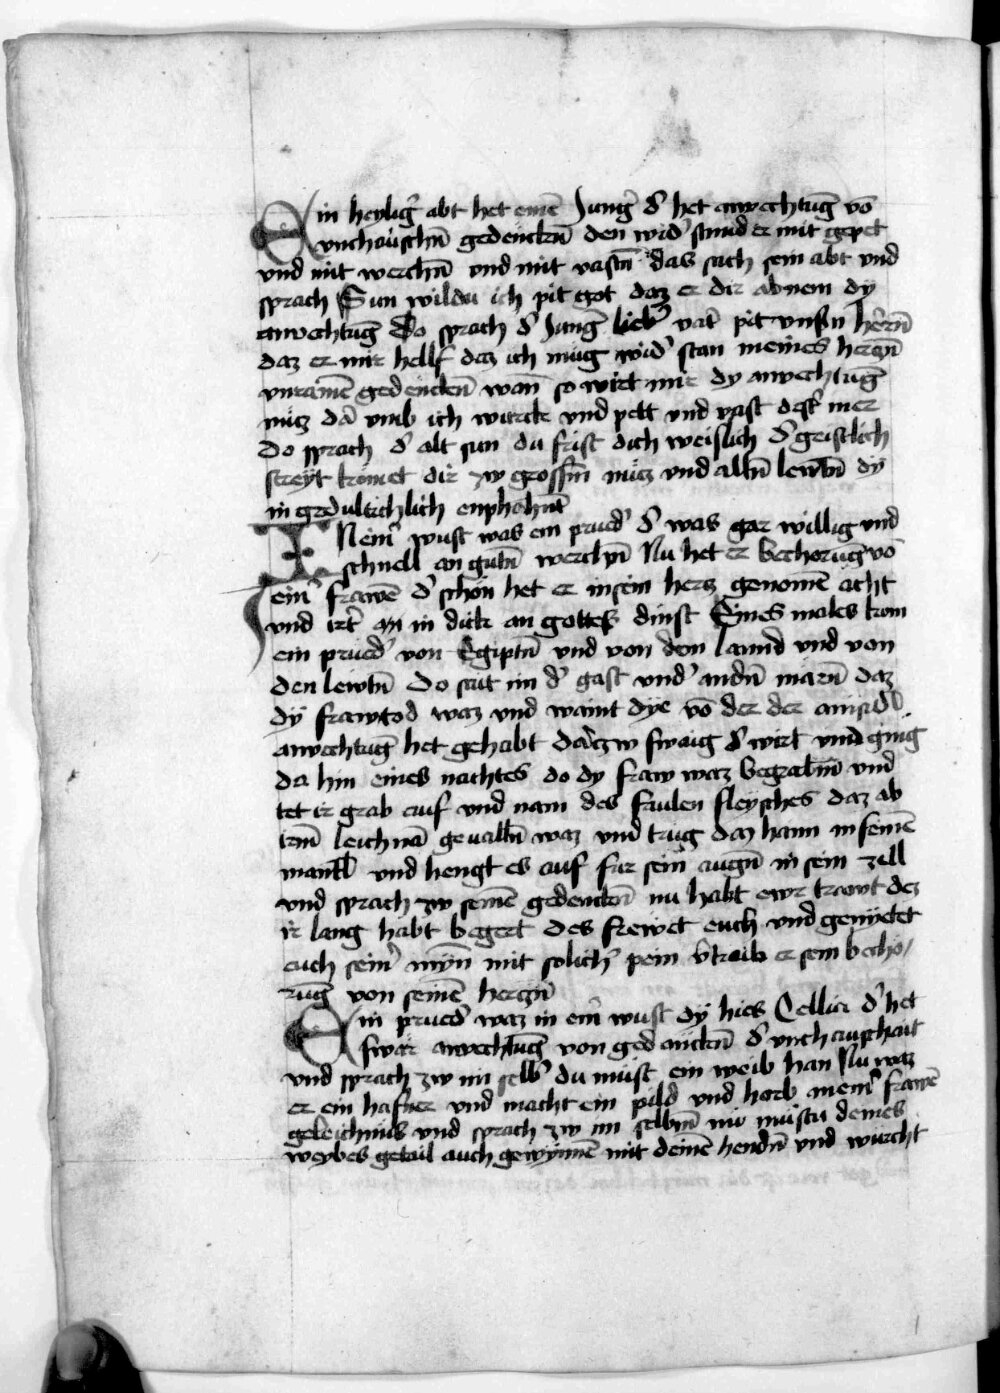 Ein heylig̉ abt het einē Jung̉ d̉ het anvechtūg vō
vnchäuschn̄ gedenckn̄ den wid̉ stund er mit gepet
vnd mit werchn̄ vnd mit vastn̄ das sach sein abt vnd
sprach Sun wildu ich pit got daz er dir abnem dy
anvechtūg Do sprach d̉ Jung̉ lieb̉ vat̉ pit vnsn̉ herrn̄
daz er mir hellf daz ich müg wid̉ stan meines herczn̄
vnraīnē gedenckn̄ wan̄ so wirt mir dy anvechtūg
nücz dā vmb ich wurck vnd pett vnd vast dest̉ mer
do sprach d̉ alt sun du frist dich weislich d̉ geistlich
streyt kumet dir zw grossm̄ nücz vnd alln̄ lewtn̄ dy
in gedultichlich enphahn̄t
IN ein̉ wust was ein prued̉ d̉ was gar willig vnd
schnell an gutn̄ werchn̄ Nu het er bechorūg vō
ein̉ frawē d̉ schön het er in sein hercz genomē acht
vnd irt̉ an in dick an gottes dinst Eines males kom
ein prued̉ von Egiptn̄ vnd von dem lannd vnd von
den lewtn̄ Do sait im d̉ gast vnd̉ andn̉ märn̄ daz
dy fraw tod waz vnd maint dye vō der der
anvechtūg het gehabt dar zw swaig d̉ wirt vnd ging
da hin eines nachtes do dy fraw waz begrabn̄ vnd
tet ir grab auf vnd nam des faulen fleysches daz ab
irm̄ leichnā gevalln̄ waz vnd trug daz haim in seinē
mantl̄ vnd hengt es auf fur sein̉ augn̄ in sein zell
vnd sprach zw seinē gedenckn̄ nu habt ewr trawt dez
ir lang habt begert des frewet euch vnd genyetet
euch sein̉ myn̄ mit solich̉ pein v̉traib er sein becho/
rūg von seinē herczn̄
Ein prued̉ waz in ein̉ wust dy hies Cellia d̉ het
swär anvechtūg von gedanckn̄ d̉ vnchauschait
vnd sprach zw im selb̉ du müst ein weib han Nu waz
er ein hafner vnd macht ein pild vnd horb ainem̉ frawē
geleichnüs vnd sprach zw im selbm̄ nu müstu deines
weybes getail auch gewynnē mit deinē hendn̄ vnd würcht